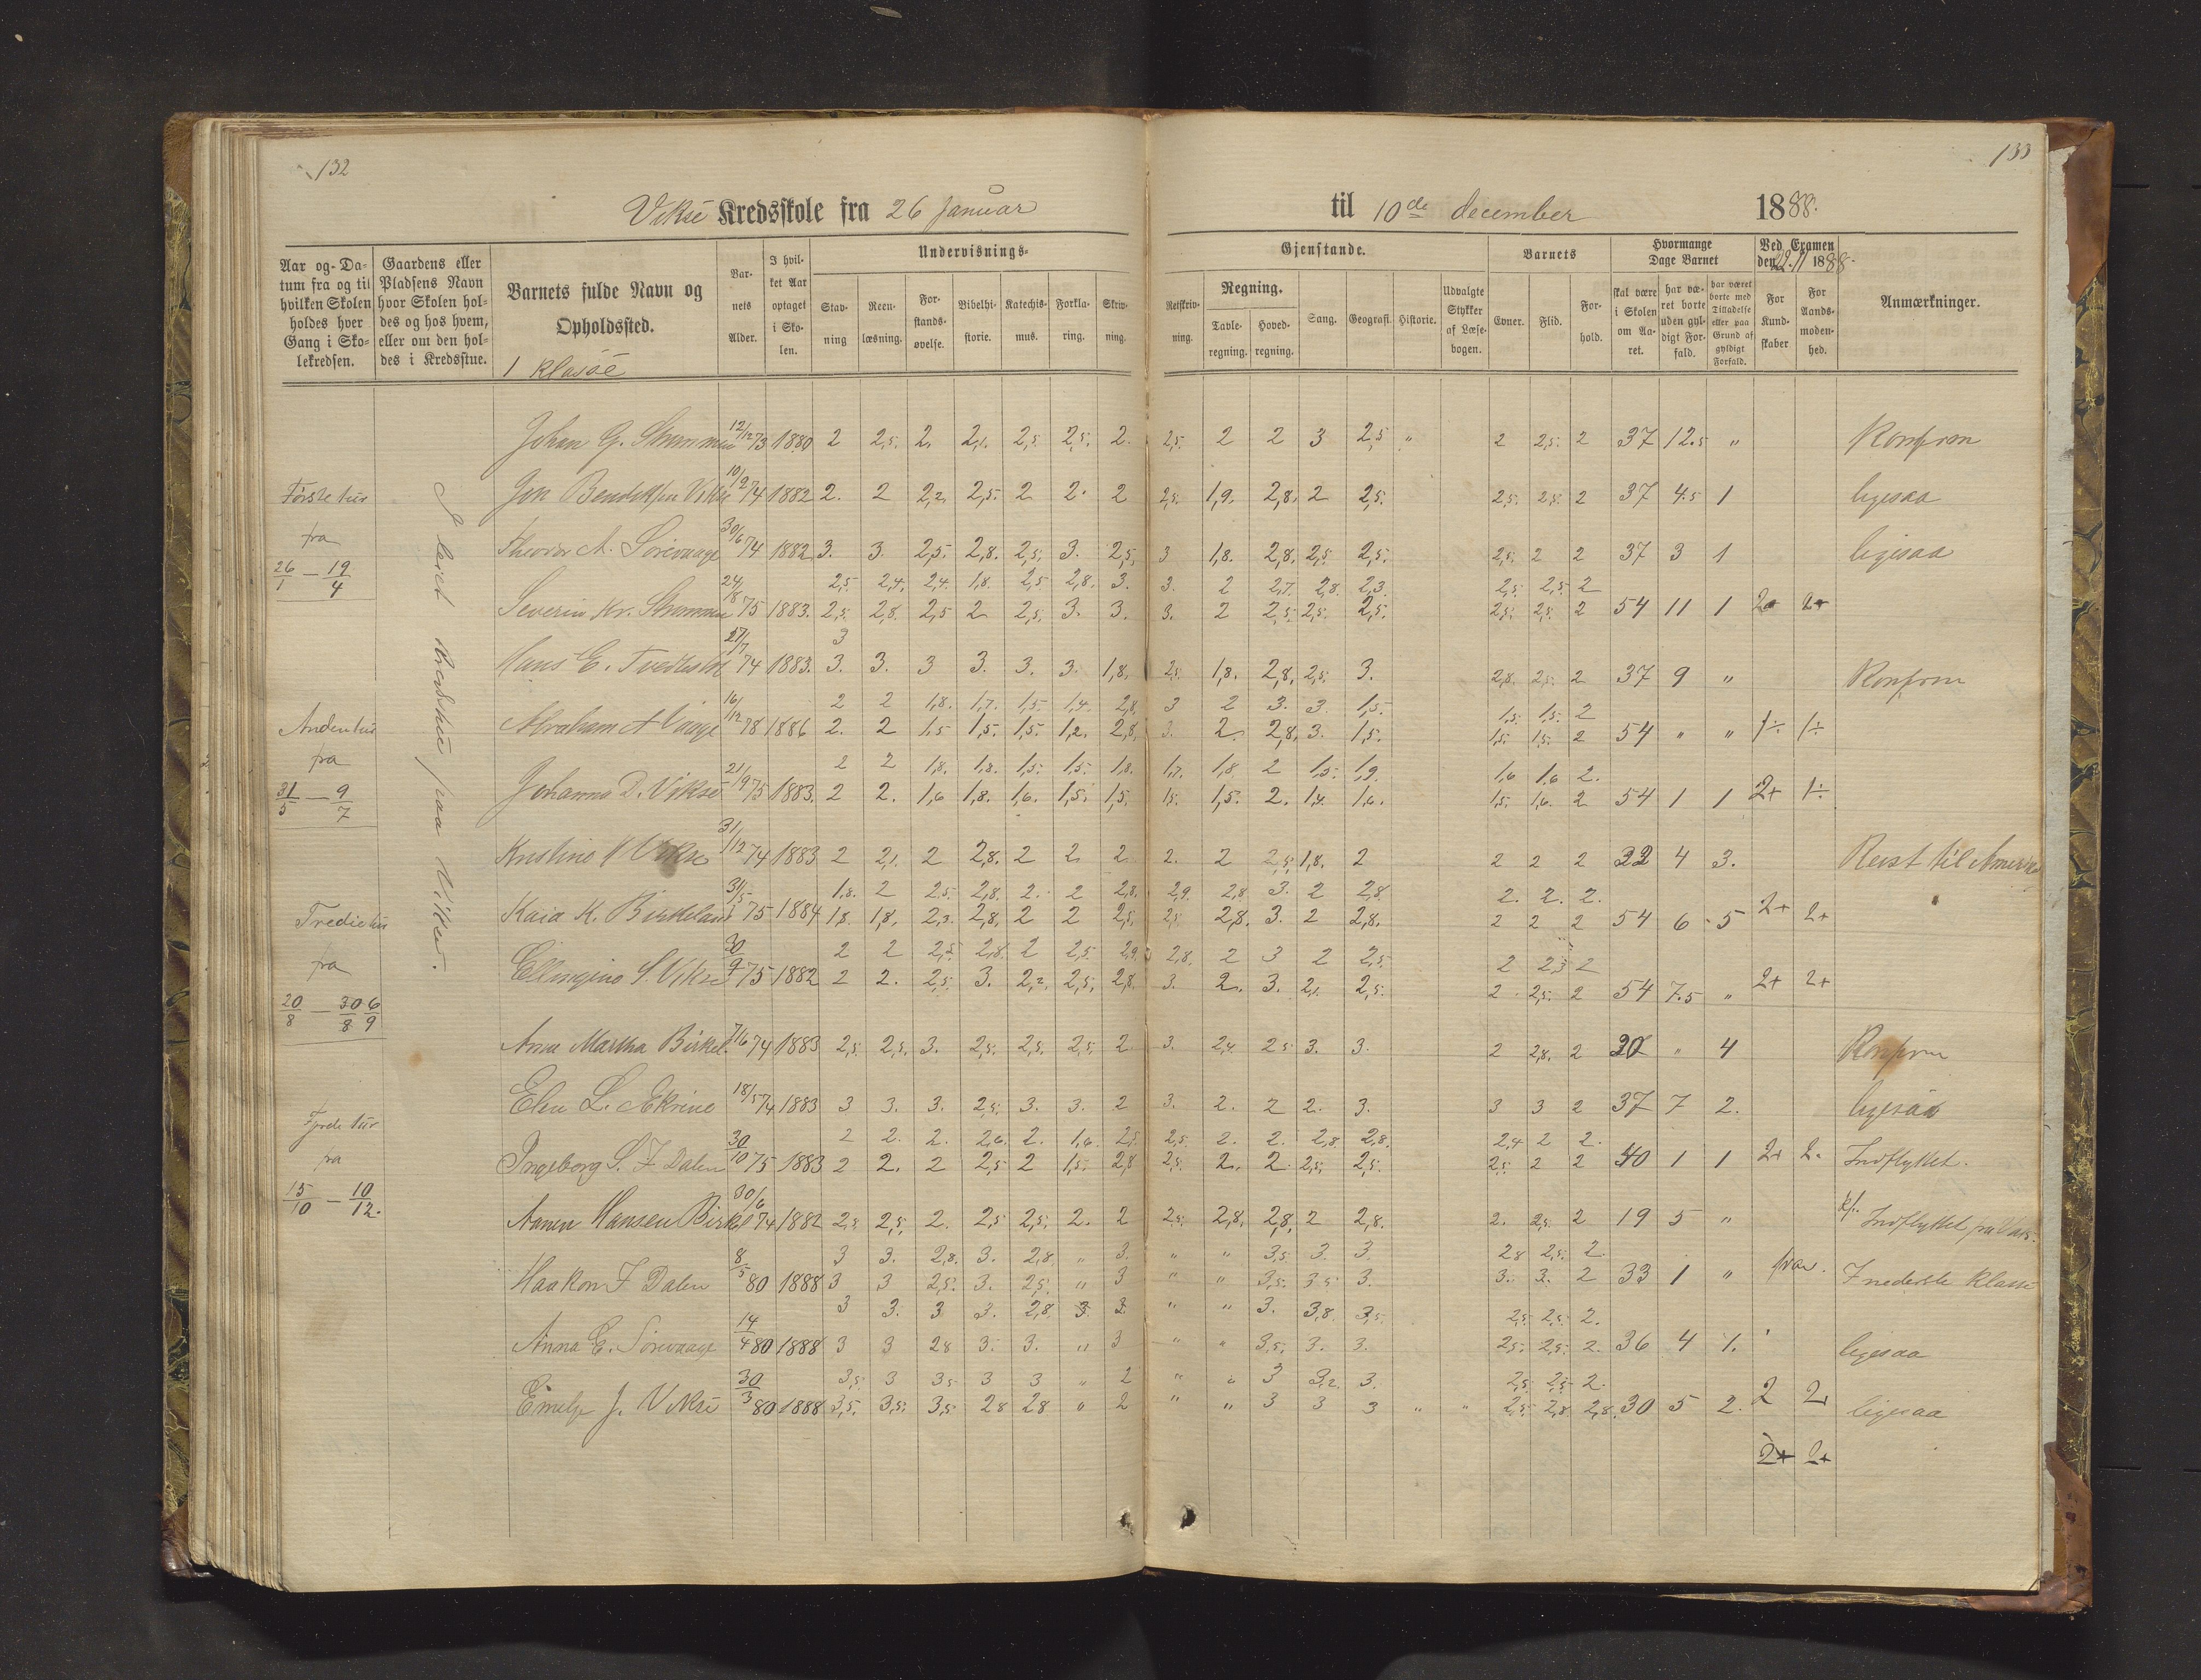 132
133
Vikse Kredsskole fra 26 Januar til 10de december 1888.
Aar og Datum fra og til hvilken Skolen holdes hver Gang i Skolekredsen.
Gaardens eller Pladsens Navn hvor Skolen holdes og hos hvem, eller om den holdes i Kredsstue.
Barnets fulde Navn og Opholdssted.
Barnets Alder.
I hvilket Aar optaget i Skolen.
Undervisnings-
Stavning
Reenlæsning.
Forstandsøvelse.
Bibelhistorie.
Katechismus.
Forklaring.
Skrivning.
Gjenstande.
Retskrivning.
Regning.
Tavleregning.
Hovedregning.
Sang.
Geografi.
Historie.
Udvalgte Stykker af Læsebogen.
Barnets
Evner.
Flid.
Forhold.
Hvormange Dage Barnet
skal være i Skolen om Aaret.
har været borte uden gyldigt Forfald.
har været borte med Tilladelse eller paa Grund af gyldigt Forfald.
Ved Examen den 22.11 1888.
For Kundskaber
For Aandsmodenhed.
Anmærkninger.
1 klasse
Første tur
fra
26/1 — 19/4
Anden tur
fra
31/5 — 9/7
Tredie tur
fra
20/8 — 30/8 6/9
Fjerde tur
fra
15/10 — 10/12.
I leiet kredsstue paa Vikse.
Johan G. Strømmen 12/12 73 1880 2 2,5. 2. 2,1. 2,5 2,5. 2. 2,5. 2 2 3 2,5 " 2 2,5. 2 37 12.5 " Konfrm
Jon Bendiksen Vikse 10/2 74 1882 2. 2 2,2. 2,5. 2 2. 2 2,5. 1,9. 2,8. 2 2,5. 2,5. 2,5. 2 37 4.5 1 ligesaa
Theodor A. Sørevaage 30/6 74 1882 3. 3. 2,5. 2,8. 2,5. 3. 2,5. 3 1,8. 2,8. 2,5. 2,5. 2,5. 2 2 37 3 1 ligesaa
2,5. 2,4. 2,4. 1,8. 2,5 2,8. 3. 3. 2 2,7. 2,8. 2,3. 2,5. 2,5. 2
Severin Kr. Strømmen 24/8 75 1883. 2,5. 2,8. 2,5 2 2,5. 3. 3. 3. 2 2,5. 2,5. 2,5. 2,5. 2,5. 2 54 11 1 2+ 2+
3
Hans E. Tvedteslid 27/7 74 1883. 3. 3. 3 3. 3. 3. 1,8. 2,5. 1,8. 2,8. 2,5. 3. 2,8. 2,5. 2 37 9 " Konfrm
2 2 1,8. 1,7. 1,5. 1,4. 2,8. 3 2 3. 3. 1,5. 1,5. 1,5. 2
Abraham A Vaage 16/12 78 1886 2. 2 1,5 1,5. 1,5. 1,2. 2,8. 3. 2. 2,8. 3. 1,5. 1,5. 1,5. 2 54 " " 1÷ 1÷
2 2 1,8. 1,8. 1,5. 1,5. 1,8. 1,7. 1,8 2 1,5. 1,9. 1,6 1,6 2.
Johanna D. Vikse 21/9 75 1883. 2 2. 1,6 1,8. 1,6. 1,5. 1,5. 1,5. 1,5. 2. 1,4. 1,6. 1,5. 1,6. 2 54 1 1 2+ 1÷
Kristine Vikse 31/12 74 1883 2 2,1. 2 2,8. 2 2. 2 2. 2 2,5. 1,8. 2 2 2 2 32 4 3. Reist til America
1,8. 2 2,5. 2,8. 2. 2 2,8. 2,9. 2,8 3. 2 2,8 2. 2. 2.
Kaia K. Birkeland 31/5 75 1884 1,8. 1,8. 2,3. 2,8. 2 2 2,5. 2,5. 2,8. 3. 2 2,8. 2 2 2 54 6 5 2+ 2+
2 2 2,5. 2,8. 2 2,5. 2,9. 2,8. 2 3 2 2,5. 2 2,3 2
Ellingine S. Vikse 30/9 75 1882 2 2. 2,5. 3. 2,2. 2,5. 2,8. 3. 2. 3. 2,1. 2,5. 2. 2,5. 2 54 7.5 " 2+ 2+
Anna Martha Birkel. 7/6 74 1883 2,5. 2,5. 3. 2,5. 2,5. 2,5. 2 3. 2,4. 2,5 3. 3. 2 2,8. 2 30 " 4 Konfrm
Elen L. Ekrene 18/5 74 1883 3 3. 3. 2,5. 3. 3. 2 3. 2. 2 2. 3. 3 3 2 37 7 2. ligesaa
2 2. 2. 2,6. 2. 1,6. 2,5. 2,5. 2. 2. 2,8. 2,8. 2,4 2 2.
Ingeborg S. F Dalen 30/10 75 1883 2 2. 2 2,5 2 1,5. 2,8 2,5. 2. 2 2,5. 2,5. 2,5. 2 2 40 1 1 2+ 2. Indflyttet.
Hansen Birkel 30/6 74 1882 2,5. 2,5. 2. 2,5 2,5. 2. 2 2,5. 2,8. 2,8. 2 2,8. 2. 2,5. 2 19 5 " Indflyttet
3 3. 2,8. 3. 2,8. " 3. " " 3,5. 3. 3. 2,8 2,5. 2.
Haakon F Dalen 8/5 80 1888 3 3 2,5. 3. 2,5. " 3 " " 3,5. 3,5. 3. 3. 3. 2 33 1 " I nederste klasse
3 3. 3. 3. 2,8. 3. 3. " " 3. 3,8. 3,5. 2,5. 2,5. 2.
Anna E. Sørevaage 14/4 80 1888 3 3 2,8 3. 3. " 3 " " 3,5. 3. 3. 2,5. 2,5. 2. 36 4 1. ligesaa
3,5. 3 3,5 3 3 " 2 " " 3 3,2. 3. 2,5. 2,5. 2.
J. Vikse 30/3 80 1888 3,5. 3,5. 3,5 2,8 2,8 " 2 " " 3 3 3 " " 2,5. 2,8. 2,8. 30 5 2. 2 2+ ligesaa
2+ 2+